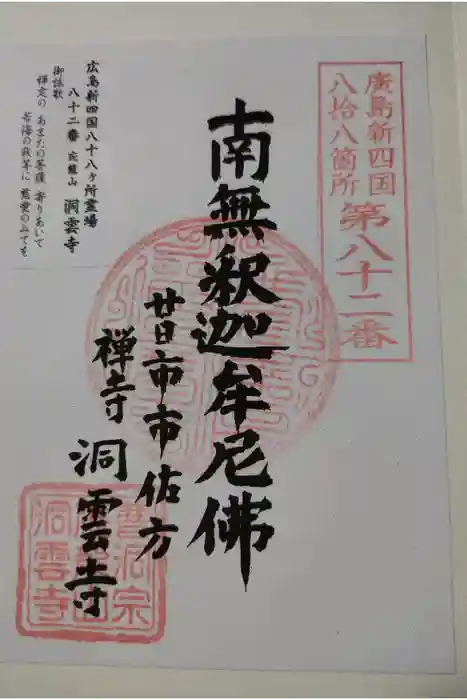 廣島新四国
八拾八箇所
第八十二番
南無釈迦牟尼佛
廿日市市佐方
禅寺 洞雲寺
広島新四国八十八ヶ所霊場
八十二番 応龍山 洞雲寺
御詠歌
禅定の あまたの菩薩 寄りあいて
苦海の我等に 慈愛のみてを
曹洞宗
洞雲寺